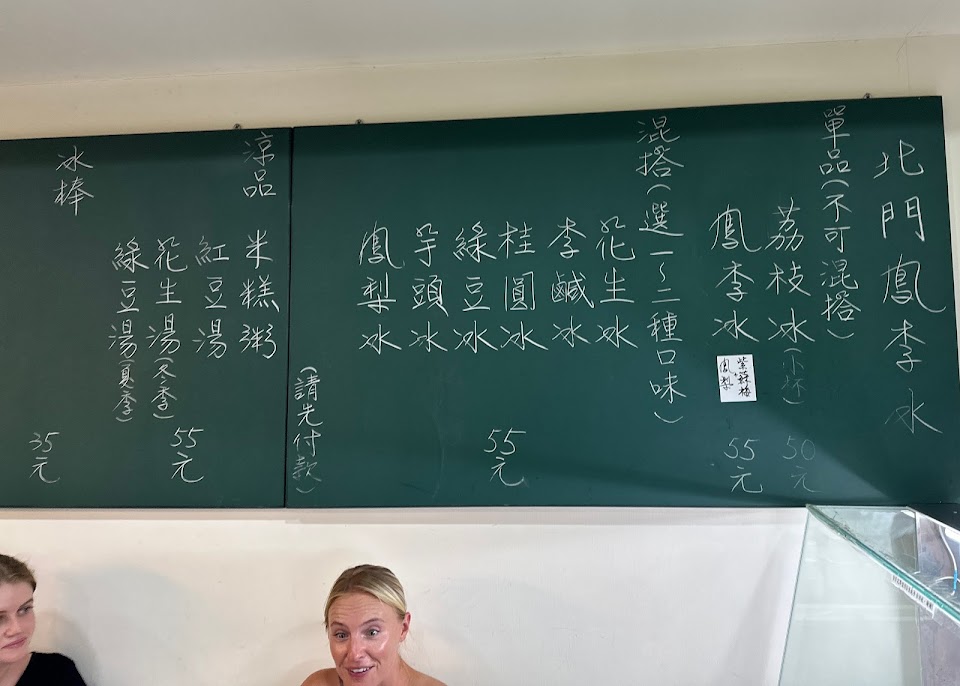 北門鳳李冰
單品(不可混搭)
荔枝冰(小杯) 50元
鳳李冰 55元
紫蘇梅
鳳梨
混搭(選一~二種口味)
花生冰
李鹹冰
桂圓冰 55元
綠豆冰
芋頭冰
鳳梨冰
(請先付款)
涼品
米糕粥
紅豆湯
花生湯(冬季) 55元
綠豆湯(夏季)
冰棒
35元